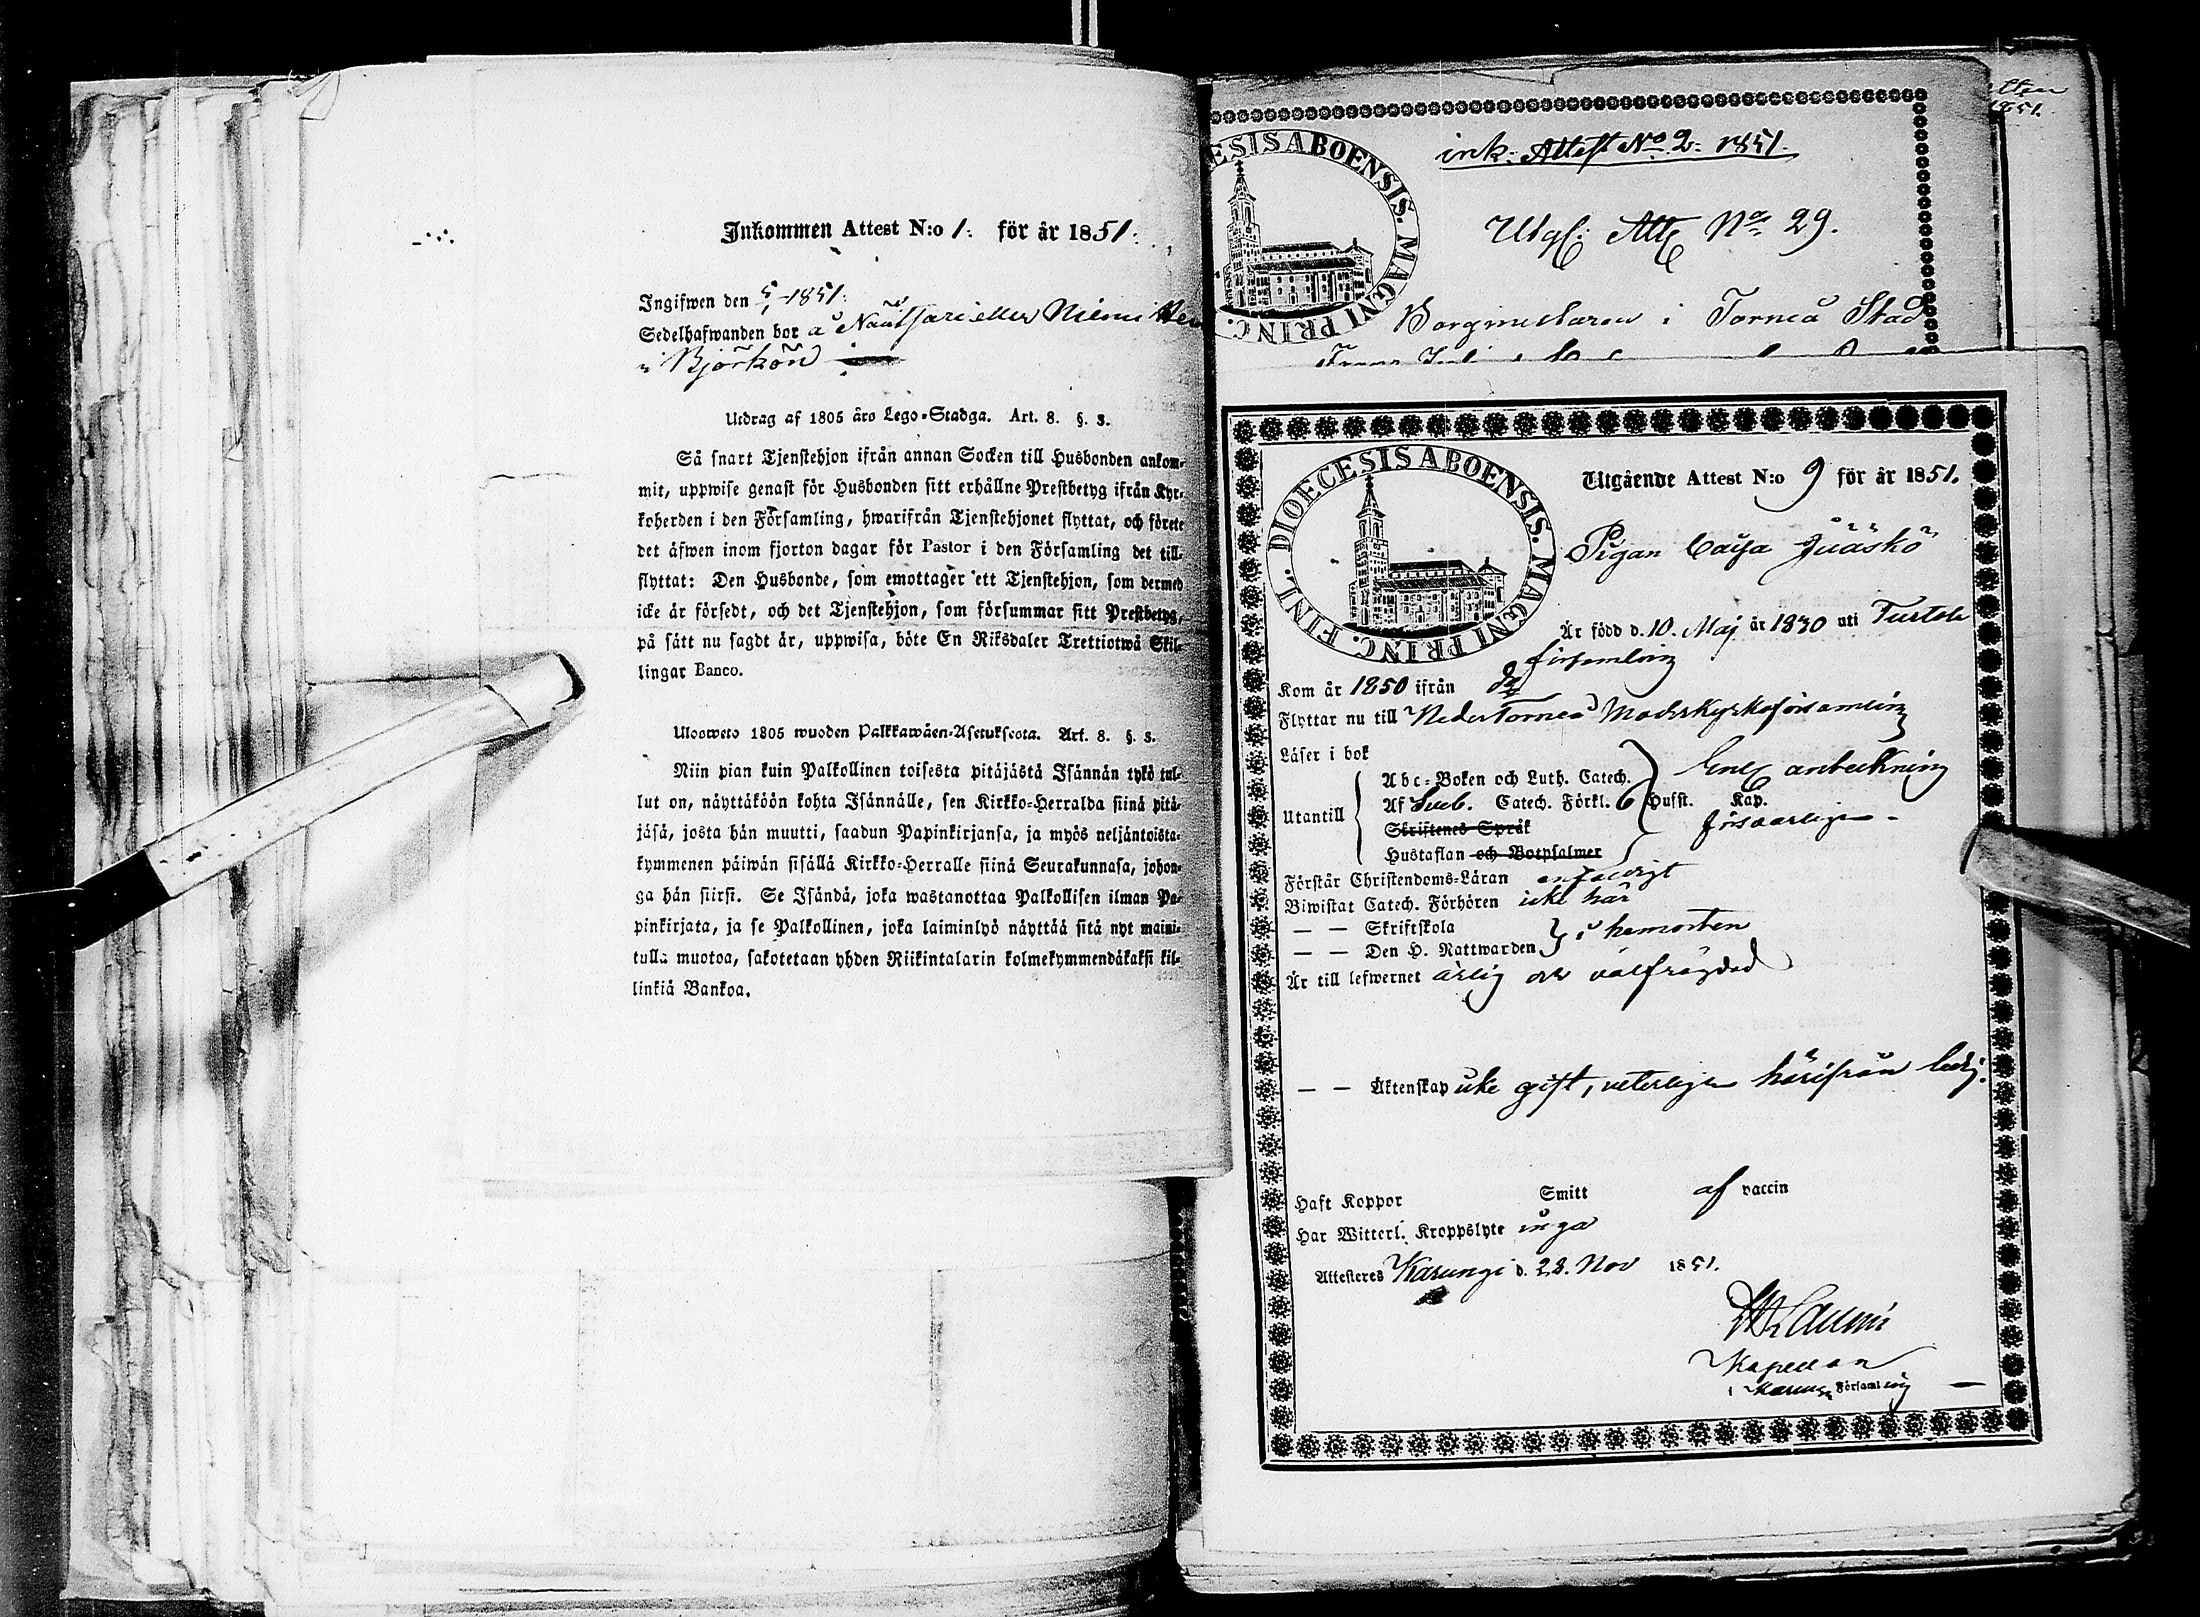 Inkommen Attest N:o 1. för år 1851.
Ingifwen den 5/1 1851.
Sedelhafwanden bor å Nautjari eller Niemi
i Björkön
Utdrag af 1805 års Lego-Stadga. Art. 8. §. 3.
Så snart Tjenstehjon ifrån annan Socken till Husbonden ankom-
mit, uppwise genast för Husbonden sitt erhållne Prestbetyg ifrån Kyr-
koherden i den Församling, hwarifrån Tjenstehjonet flyttat, och förete
det äfwen inom fjorton dagar för Pastor i den Församling det till-
flyttat: Den Husbonde, som emottager ett Tjenstehjon, som dermed
icke är försedt, och det Tjenstehjon, som försummar sitt Prestbetyg,
på sätt nu sagdt är, uppwisa, böte En Riksdaler Trettiotwå Skil-
lingar Banco.
Ulosweto 1805 wuoden Palkkawäen-Asetuksesta. Art. 8. §. 3.
Niin pian kuin Palkollinen toisesta pitäjästä Isännän tykö tul-
lut on, näyttäköön kohta Isännälle, sen Kirkko-Herralda siinä pitä-
jäsä, josta hän muutti, saadun Papinkirjansa, ja myös neljäntoista-
kymmenen päiwän sisällä Kirkko-Herralle siinä Seurakunnasa, johon-
ga hän siirsi. Se Isändä, joka wastanottaa Palkollisen ilman Pa-
pinkirjata, ja se Palkollinen, joka laiminlyö näyttää sitä nyt maini-
tulla muotoa, sakotetaan yhden Riikintalarin kolmekymmendäkaksi kil-
linkiä Bankoa.
1851.
ink. Attest No 2. 1851.
Utgl: Att No 29.
ESIS ABOENSIS. MAGNI PRINC.
Borgmästaren i Torneå Stad
Utgående Attest N:o 9 för år 1851.
DIOECESIS ABOENSIS. MAGNI PRINC. FINL.
Pigan Caisa Jääskö
Är född d. 10. Maj år 1830 uti Turtola
församling
Kom år 1850 ifrån d:o
Flyttar nu till Neder Torneå Moderkyrkoförsamling
Läser i bok
Utantill
Abc-Boken och Luth. Catech.
Enl. anteckning
Af Sveb. Catech. Förkl. 6 Husst. Kap.
Skriftenes Språk
försvarligen -
Hustaflan och Botpsalmer
Förstår Christendoms-Läran enfaldigt
Biwistat Catech. Förhören icke här
— — Skriftskola
i hemorten
— — Den H. Nattwarden
Är till lefwernet ärlig och välfrägdad
— — Äktenskap icke gift, veterligen härifrån ledig.
Haft Koppor Smitt af vaccin
Har Witterl. Kroppslyte inga
Attesteres Karungi d. 28. Nov 1851.
Kapellan
i Karungi Församling